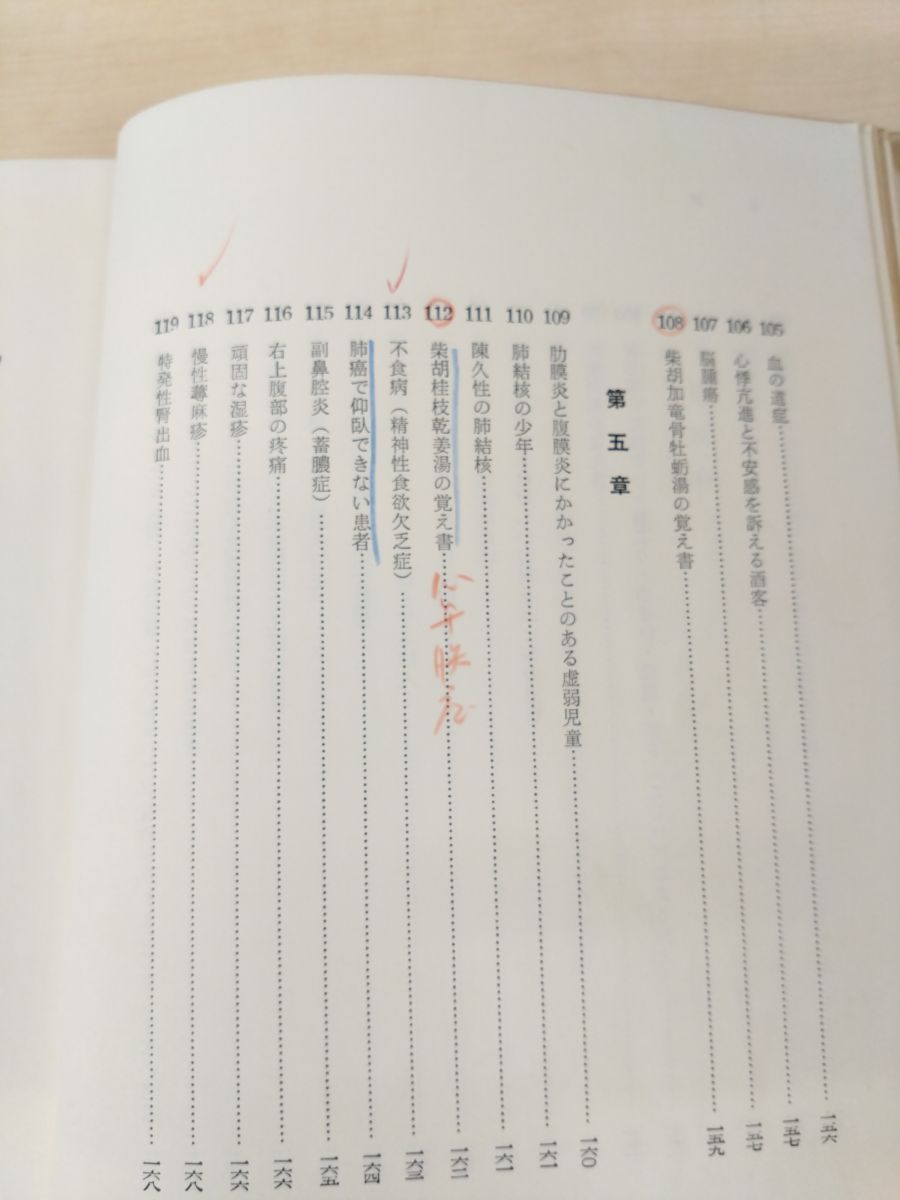 105 血の道症……一五六
106 心悸亢進と不安感を訴える酒客……一五七
107 脳腫瘍……一五七
108 柴胡加竜骨牡蛎湯の覚え書……一五九
第五章
109 肋膜炎と腹膜炎にかかったことのある虚弱児童……一六〇
110 肺結核の少年……一六一
111 陳久性の肺結核……一六一
112 柴胡桂枝乾姜湯の覚え書……一六二
113 不食病（精神性食欲欠乏症）……一六三
114 肺癌で仰臥できない患者……一六四
115 副鼻腔炎（蓄膿症）……一六五
116 右上腹部の疼痛……一六六
117 頑固な湿疹……一六六
118 慢性蕁麻疹……一六八
119 特発性腎出血……一六八